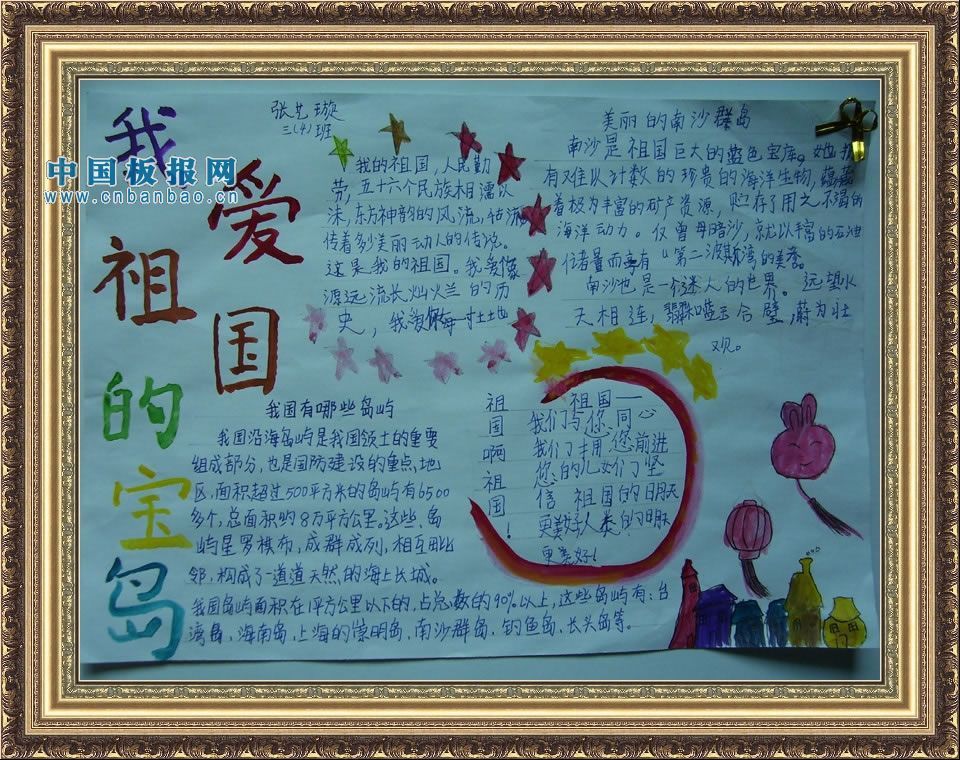 我爱祖国的宝岛
中国板报网
www.cnbanbao.cn
张艺璇
三(4)班
我的祖国,人民勤
劳,五十六个民族相濡以
沫,东方神韵的风流,估流
传着多少美丽动人的传说。
这是我的祖国。我爱像
源远流长灿兰的历
史,我爱每一寸土地
美丽的南沙群岛
南沙是祖国巨大的蓝色宝库。她拥
有难以计数的珍贵的海洋生物,蕴藏
着极为丰富的矿产资源,贮存了用之不竭的
海洋动力。仅曾母暗沙,就以丰富的石油
储量而享有“第二波斯湾的美誉。
南沙也是一个迷人的世界。远望水
天相连,合璧,蔚为壮
观。
我国有哪些岛屿
我国沿海岛屿是我国领土的重要
组成部分,也是国防建设的重点地
区,面积超过500平方米的岛屿有6500
多个,总面积约8万平方公里。这些岛
屿星罗棋布,成群成列,相互毗
邻,构成了一道道天然的海上长城。
我国岛屿面积在1平方公里以下的,占总数的90%以上,这些岛屿有:台
湾岛,海南岛,上海的崇明岛,南沙群岛,钓鱼岛,长头岛等。
祖国啊祖国!
祖国一
我们与你同心
我们才用您前进
您的儿女们坚
信 祖国的明天
更美好人类的明天
更美好!